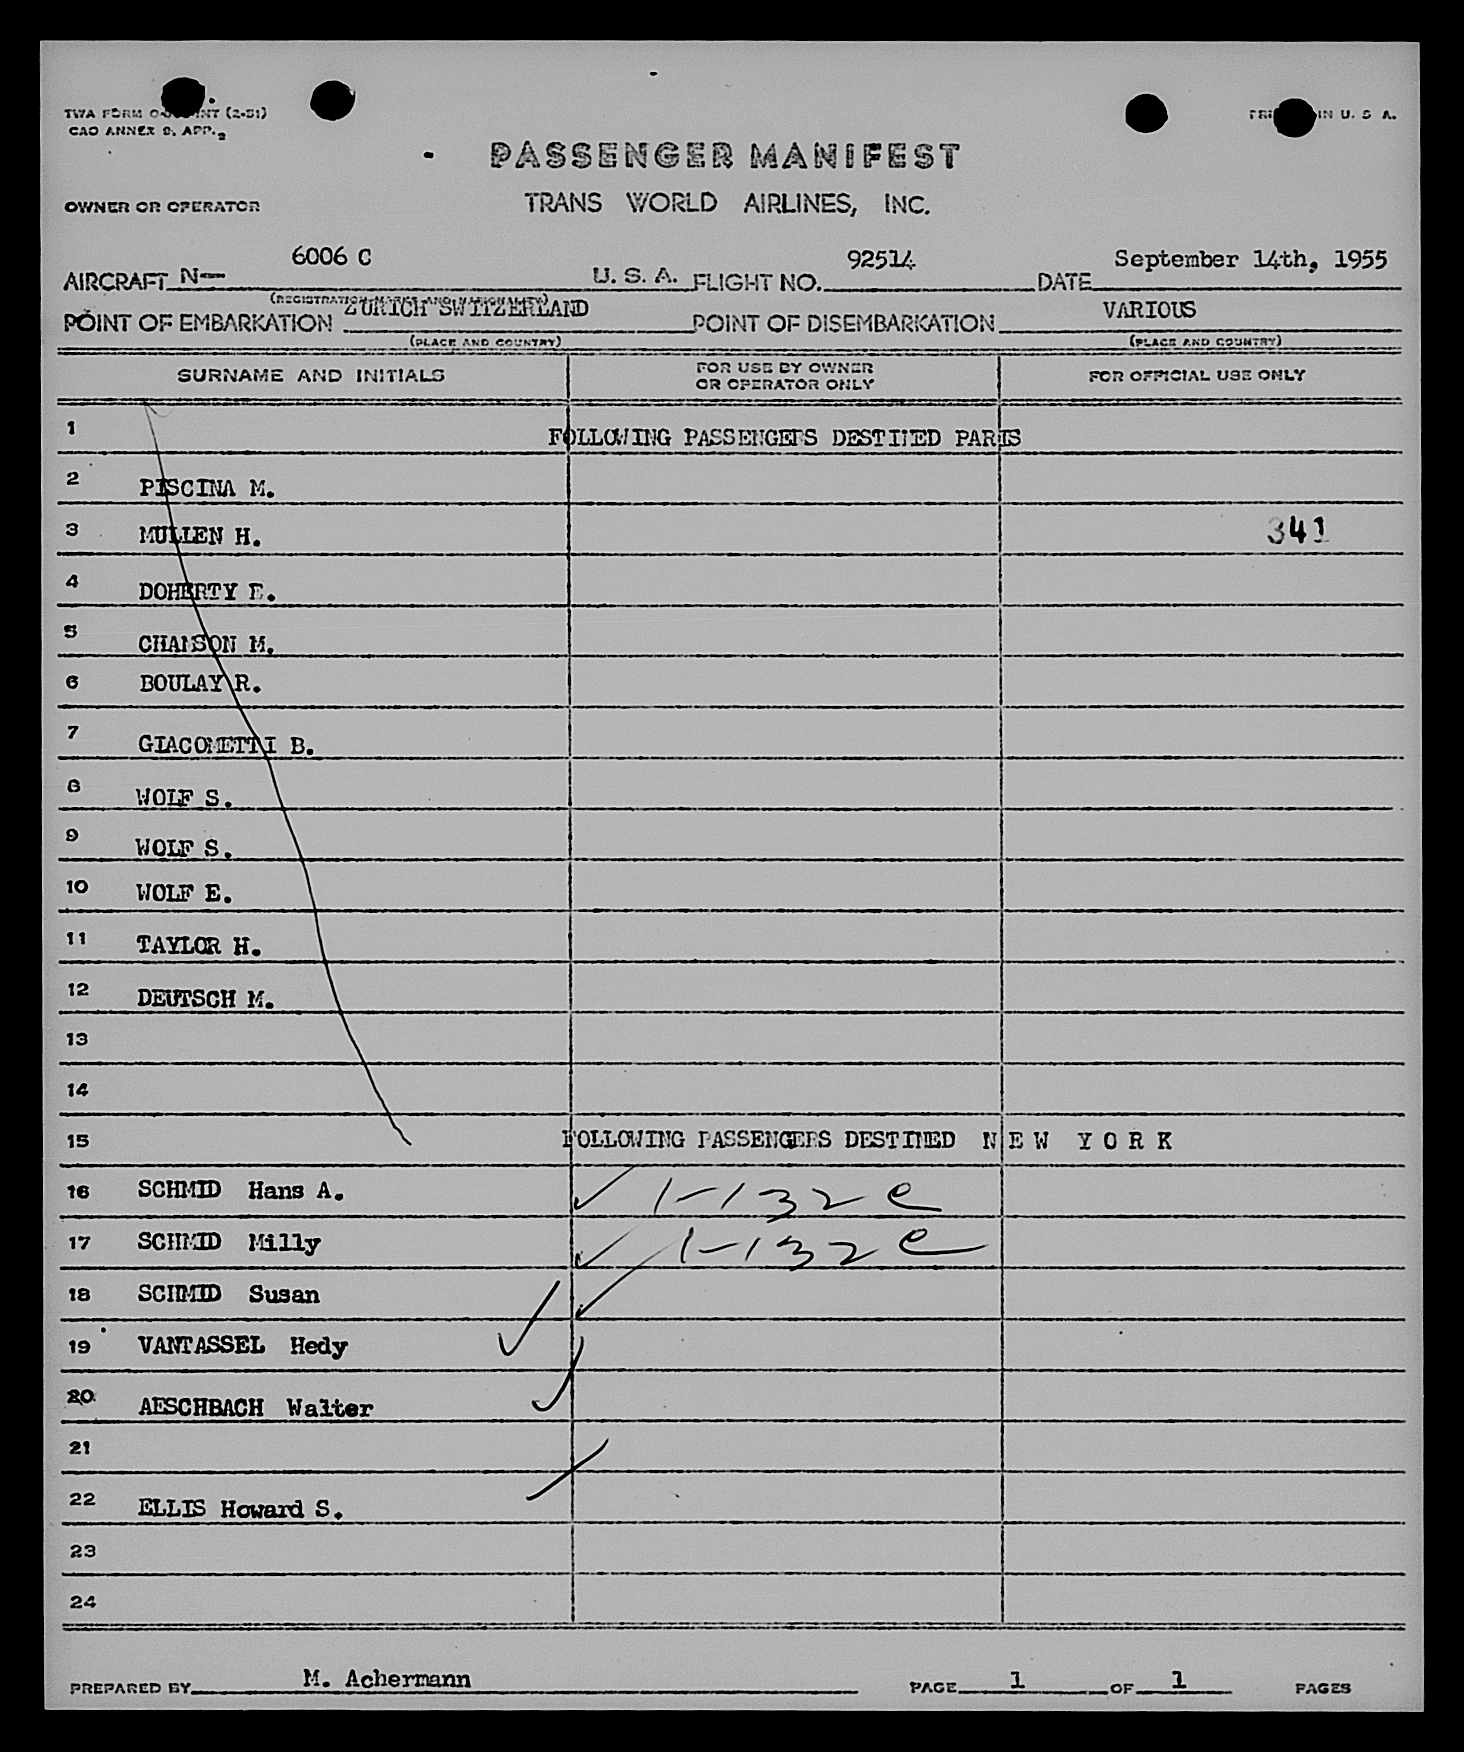 TWA FORM (2-51)
CAO ANNEX 9, APP. 2
PRINTED IN U. S. A.
PASSENGER MANIFEST
OWNER OR OPERATOR
TRANS WORLD AIRLINES, INC.
AIRCRAFT N- 6006 C U. S. A. FLIGHT NO. 92514 DATE September 14th, 1955
(REGISTRATION MARKS AND NATIONALITY)
POINT OF EMBARKATION ZURICH SWITZERLAND POINT OF DISEMBARKATION VARIOUS
(PLACE AND COUNTRY) (PLACE AND COUNTRY)
SURNAME AND INITIALS FOR USE BY OWNER OR OPERATOR ONLY FOR OFFICIAL USE ONLY
1 FOLLOWING PASSENGERS DESTINED PARIS
2 PISCINA M.
3 MULLEN H. 341
4 DOHERTY E.
5 CHANSON M.
6 BOULAY R.
7 GIACOMETTI B.
8 WOLF S.
9 WOLF S.
10 WOLF E.
11 TAYLOR H.
12 DEUTSCH M.
13
14
15 FOLLOWING PASSENGERS DESTINED N E W Y O R K
16 SCHMID Hans A. 1-132 e
17 SCHMID Milly 1-132 e
18 SCHMID Susan
19 VANTASSEL Hedy
20 AESCHBACH Walter
21
22 ELLIS Howard S.
23
24
PREPARED BY M. Achermann PAGE 1 OF 1 PAGES